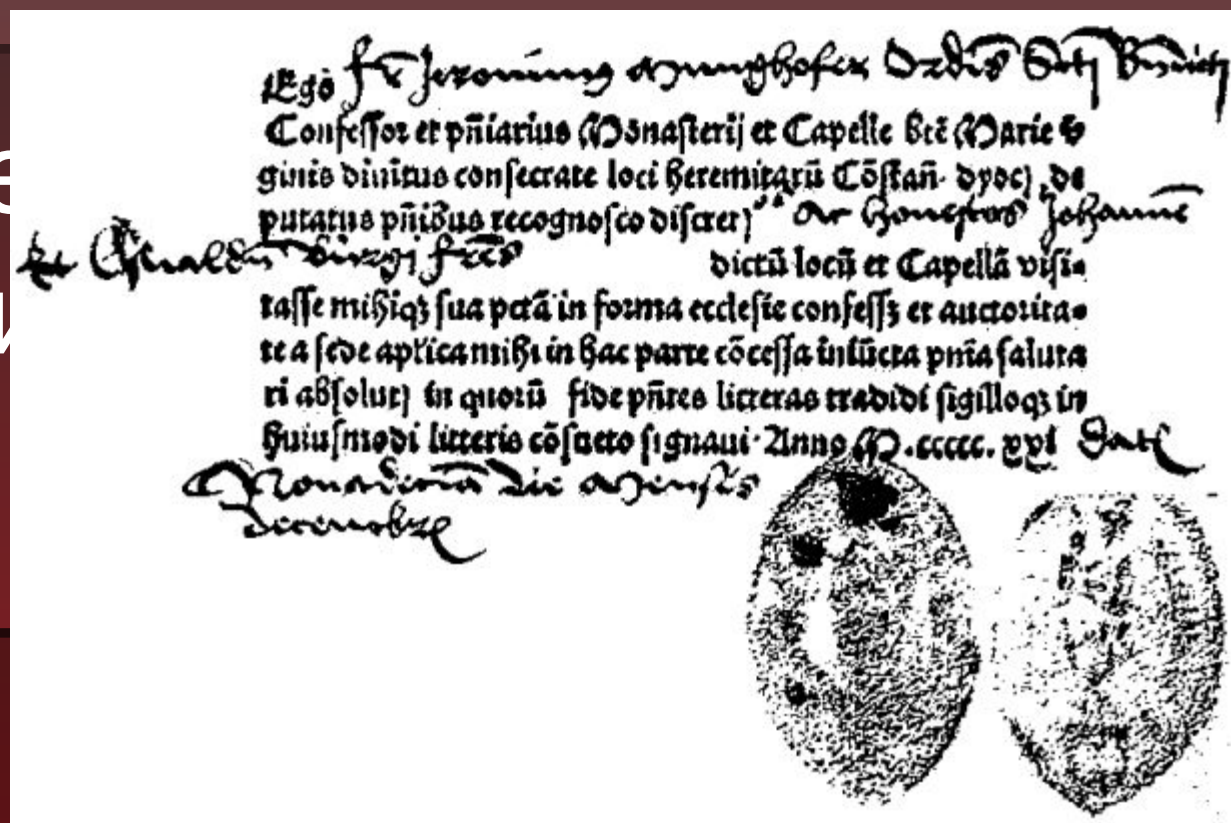 Ego fr̃ Jeronimus Munghofer Ordĩs Sctj Bñdictj
Confessor et pñiarius Monasterij et Capelle btẽ Marie v̾
ginis diuitus consecrate loci heremitarũ Cõstañ. dyocꝭ, de
putatus pñibus recognosco discretꝭ ac honestos Johannẽ
et Oswaldũ fr̃es
dictũ locũ et Capellã visi⸗
tasse mihiqꝫ sua pctã in forma ecclesie confessꝭ et auctorita⸗
te a sede aplica mihi in hac parte cõcessa iniũcta pnĩa saluta
ri absolutꝭ in quorũ fide pñtes litteras tradidi sigilloqꝫ in
huiusmodi litteris cõsueto signaui. Anno M.ccccc.xxj Datũ
Nonadecĩa die Mensis
decembrꝭ